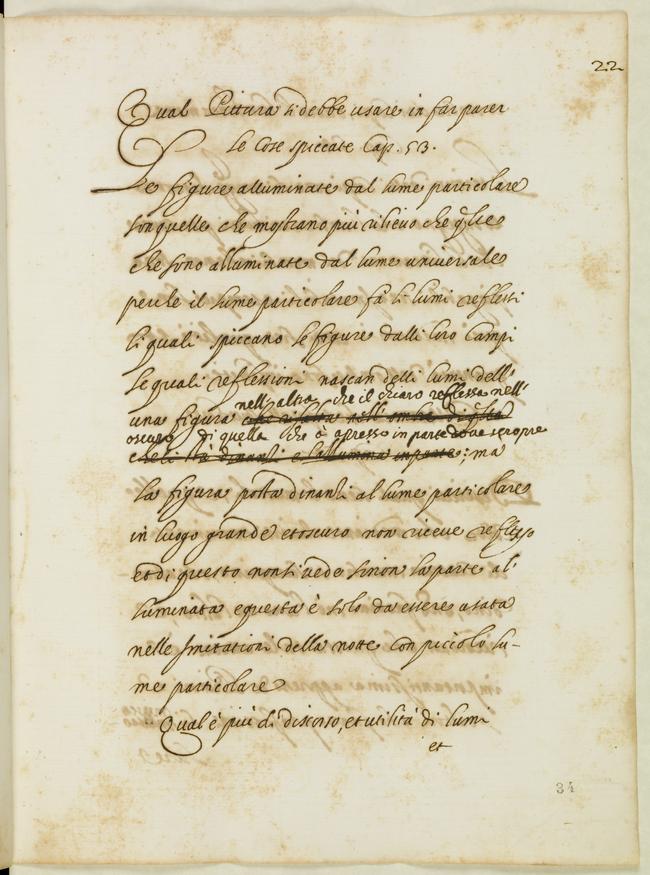 22
Qual Pittura si debbe usare in far parer
le Cose spiccate Cap. 53.
Le figure alluminate dal lume particolare
son quelle che mostrano più rilievo che q̃lle
che sono alluminate dal lume universale
perche il lume particolare fà li lumi reflessi
li quali spiccano le figure dalli loro Campi
le quali reflessioni nascan delli lumi dell'
nell'altra che il chiaro reflessa nell'
una figura che risalta nell'ombra di q̃lla
oscuro di quella che è apresso in parte dove sempre
che li stà dinanti e l'allumina in parte; ma
la figura posta dinanti al lume particolare
in luogo grande et oscuro non riceve reflesso
et di questo non si vede sinon la parte al'
luminata e questa è solo da essere usata
nelle imitationi della notte con piccolo lu-
me particolare
Qual è più di discorso, et utilità di lumi
et
34